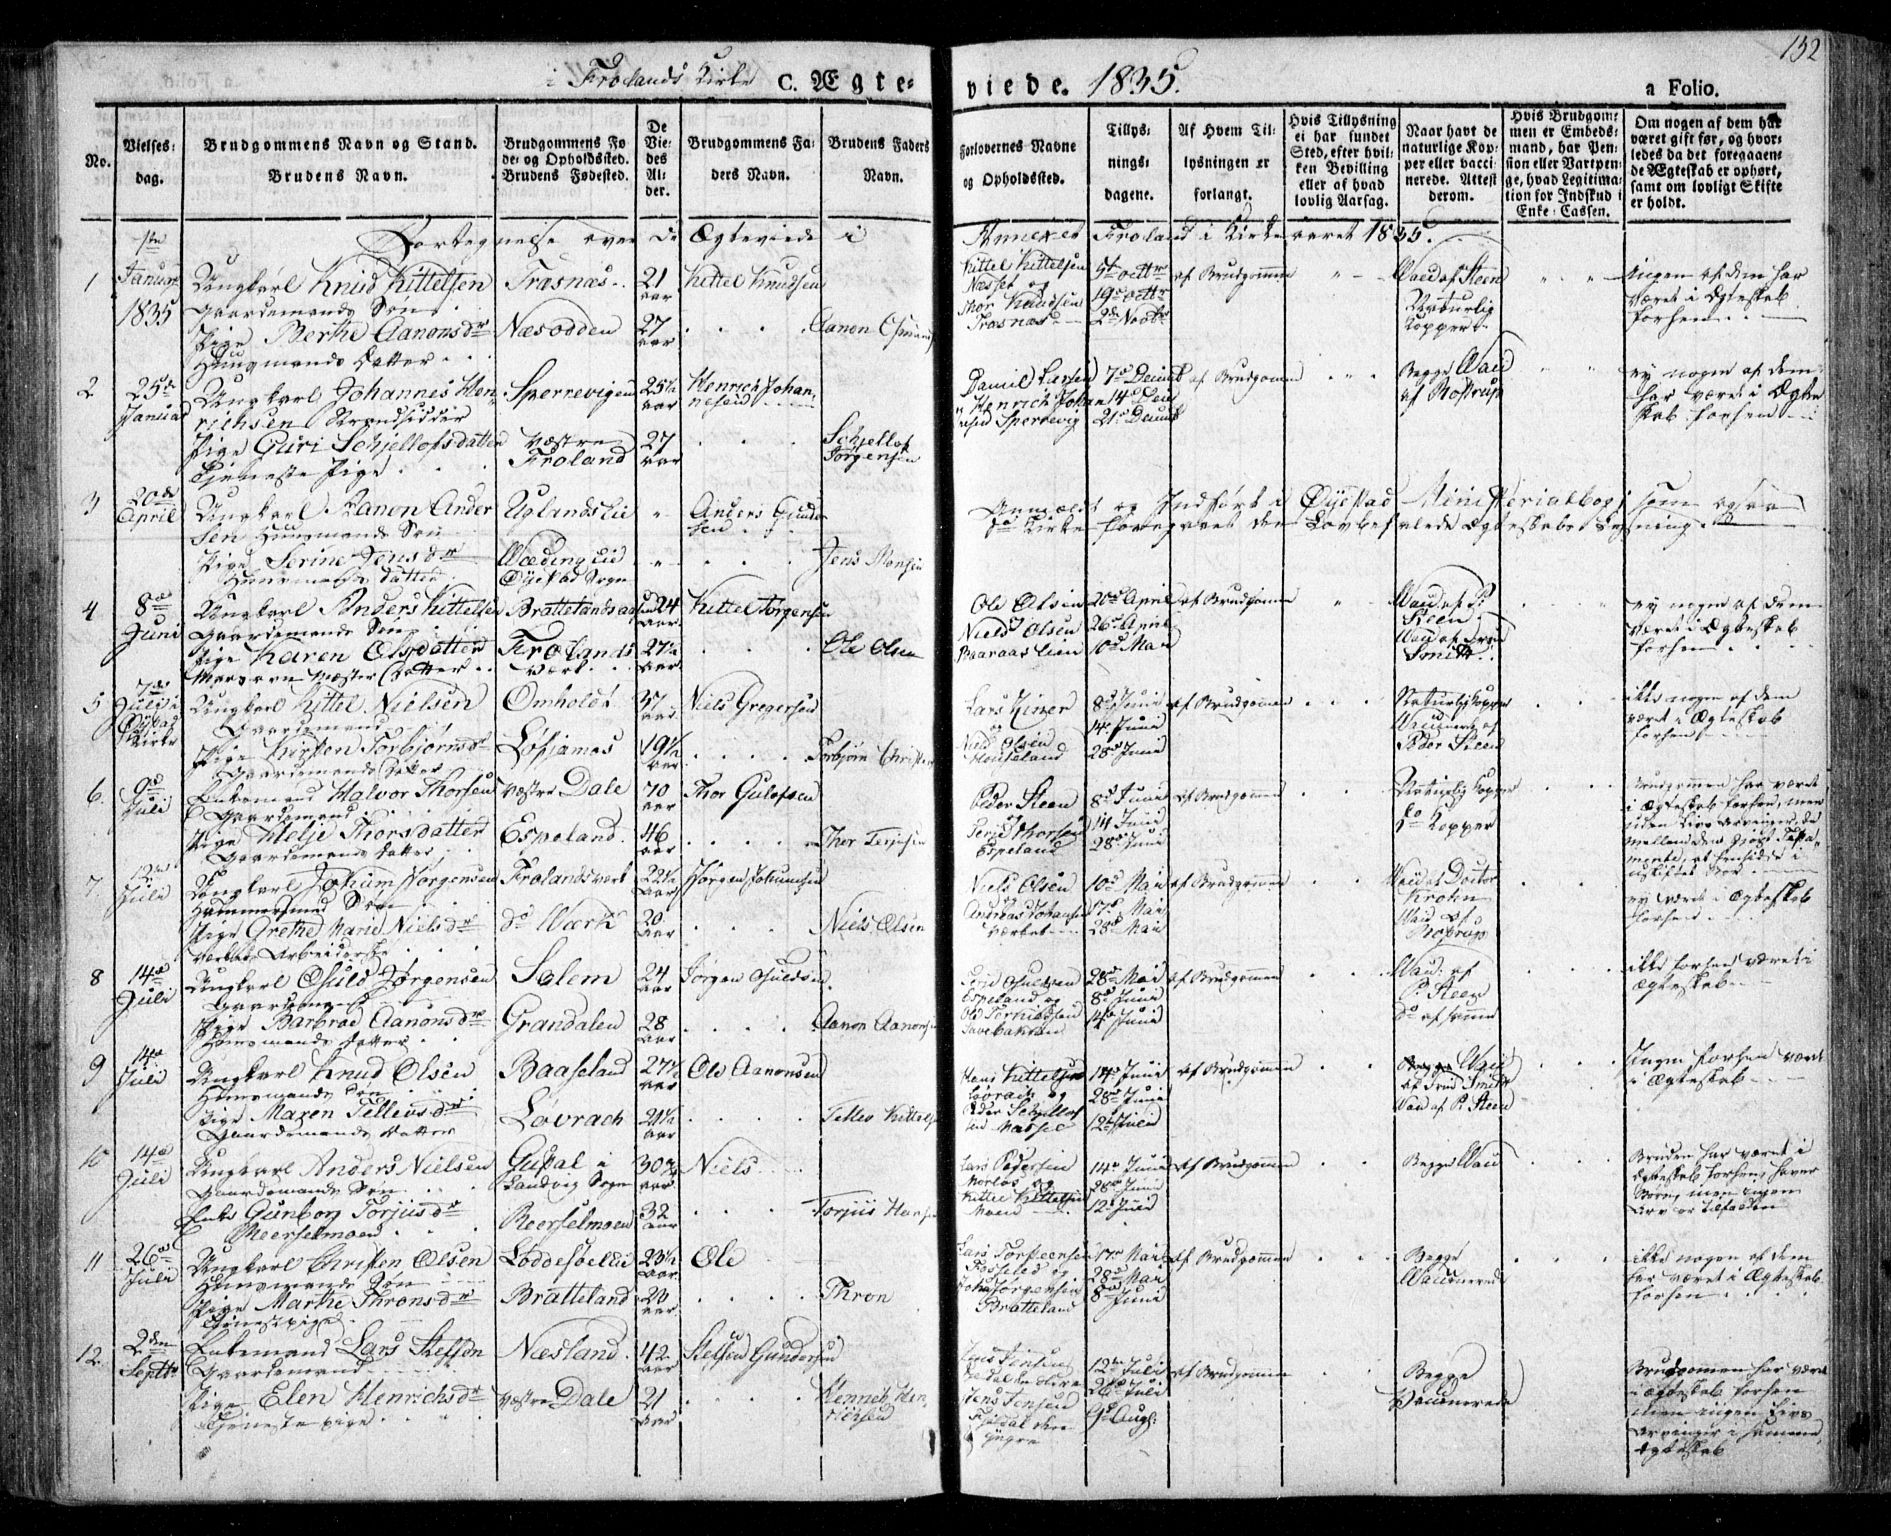 152
i Frolands Kirke C. Ægte-
viede. 1835.
a Folio.
No.
Vielses-
dag.
Brudgommens Navn og Stand.
Brudens Navn.
Brudgommens Fø-
de- og Opholdssted.
Brudens Fødested.
De
Vie-
des
Al-
der.
Brudgommens Fa-
ders Navn.
Brudens Faders
Navn.
Forlovernes Navne
og Opholdssted.
Tillys-
nings-
dagene.
Af Hvem Til-
lysningen er
forlangt.
Hvis Tillysning
ei har fundet
Sted, efter hvil-
ken Bevilling
eller af hvad
lovlig Aarsag.
Naar havt de
naturlige Kop-
per eller vacci-
nerede. Attest
derom.
Hvis Brudgom-
men er Embeds-
mand, har Pen-
sion eller Vartpen-
ge, hvad Legitima-
tion for Indskud i
Enke-Cassen.
Om nogen af dem har
været gift før, og hvor-
ledes da det foregaaen-
de Ægteskab er ophørt,
samt om lovligt Skifte
er holdt.
Fortegnelse over de Ægteviede i
Annexet Froland i Kirkeaaret 1835.
1
1ste
Januar
1835
Ungkarl Knud Kittelsen
Gaardemands Søn
Pige Berthe Aanonsdr
Huusmands Datter
Trasnæs
Næsodden
21
aar
27
aar
Kittel Knudsen
Aanon
Kittel Kittelsen
Næsset og
Thor Knudsen
Trasnæs
5t octbr
19de octbr
2de Novbr
af Brudgommen
Vacc. af Steen
Naturlig
Kopper
Ingen af dem har
været i Ægteskab
forhen
2
25de
Januar
Ungkarl Johannes Hen-
richsen Strandsidder
Pige Guri Schjellofsdatter
Tjeneste Pige
Sperrevigen
Vestre
Froland
25½
aar
27
aar
Henrich Johan-
nesen
Schjellof
Jørgensen
Daniel Larsen
Henrich Johan-
nesen Sperrevig
7de Decmb
14de Decm
21de Decmb
af Brudgommen
Begge Vacc
af Rostrup
ey nogen af dem
har været i Ægte-
skab forhen
3
20de
April
Ungkarl Aanon Ander-
sen Huusmands Søn
Pige Serine Jensdr
Huusmands Datter
Uglandslie
Øyestad Sogn
Anders Gunder-
sen
Jens Monsen
Anmeldt og Indført i Øyestad Ministerialbog, som ogsaa
do Kirke foregaaet den Lovbefalede Ægteskabs Lysning
4
8de
Juni
Ungkarl Anders Kittelsen
Gaardemands Søn
Pige Karen Olsdatter
Masovn Mester Datter
Brattelandsaasen
Frolands
Værk
24
aar
27½
aar
Kittel Jørgensen
Ole Olsen
Ole Olsen
Niels Olsen
20de April
26de April
10de Mai
af Brudgommen
Vacc af P.
Steen
Vacc af Fru
Smith
ey nogen af dem
været i Ægteskab
forhen
5
7de
Juli i
Øyestad
Kirke
Ungkarl Kittel Nielsen
Gaardemand
Pige Kirsten Torbjørnsdr
Gaardemands Datter
Omholdt
Løfsjamos
37
aar
19½
aar
Niels Gregersen
Torbjørn Christen
Lars
og
Niels Olsen
8de Juni
14de Juni
28de Juni
af Brudgommen
Naturlig Kopper
Vaccineret af
Peder Steen
ikke nogen af dem
været i Ægteskab
forhen
6.
9de
Juli
Enkemand Halvor Thorsen
Gaardemand
Pige Helje Thorsdatter
Gaardemands Datter
Vestre Dale
Espeland
70
aar
46
aar
Thor Gulofsen
Thor Terjesen
Peder Steen
og
Terje Thorsen
Espeland
8de Juni
14 Juni
28de Juni
af Brudgommen
Naturlig Kopper
do Kopper
Brudgommen har været
i Ægteskab forhen, men
uden Livs Arvinger, da
mellem dem gjort Testa-
mente, at hensidde i
uskiftet Boe
7
12te
Juli
Ungkarl Johum Jørgensen
Hammersmed Søn
Pige Grethe Marie Nielsdr
Værkets Arbeiderske
Frolandsverk
do Værk
22½
aar
20
aar
Jørgen Johumsen
Niels Olsen
Niels Olsen
og
Andreas Johansen
Værket
10de Mai
17de Mai
28de Mai
af Brudgommen
Vacc af Doctor
Vacc af
Rostrup
ey været i Ægteskab
forhen
8
14de
Juli
Ungkarl Osuld Jørgensen
Gaardemand
Pige Barbrae Aanonsdr
Huusmands Datter
Salem
Grandalen
24
aar
28
aar
Jørgen Osuldsen
Aanon Aanonsen
Terje Osuldsen
Espeland og
28de Mai
8de Juni
14de Juni
af Brudgommen
Vacc. af
P. Steen
do af samme
ikke forhen været i
Ægteskab
9
14de
Juli
Ungkarl Knud Olsen
Huusmands Søn
Pige Maren Tellevsdr
Gaardemands Datter
Baaseland
Løvrach
27½
aar
21½
aar
Ole Aanonsen
Tellev Kittelsen
Hans Kittelsen
Løvrach og
Peder Schjellof-
sen Messel
14de Juni
28de Juni
12te Juli
af Brudgommen
Begge Vacc
af Frue Smith
Vacc af P. Steen
Ingen forhen været
i Ægteskab
10
14de
Juli
Ungkarl Anders Nielsen
Gaardemands Søn
Enke Gunborg Torjusdr
Reerselmoen
Gusdal i
Landvig Sogn
Reerselmoen
30¾
aar
32
aar
Niels
Torjus Hansen
Lars Pedersen
og
Kittel Kittelsen
14de Juni
28de Juni
12te Juli
af Brudgommen
Begge Vacc
Bruden har været i
Ægteskab forhen, haver
Børn, men ingen
Arv er tilfalden
11
26de
Juli
Ungkarl Christen Olsen
Huusmands Søn
Pige Marthe Thronsdr
Tjenestepige
Loddefoelie
Bratteland
23½
aar
23
aar
Ole
Thron
Lars Torstensen
Fosseld og
Johs Jørgensen
Bratteland
17de Mai
28de Mai
8de Juni
af Brudgommen
Begge
Vaccinerede
ikke nogen af dem
har været i Ægteskab
forhen
12.
2den
Septbr
Enkemand Lars Stelson
Gaardemand
Pige Elen Henrichsdr
Tjeneste pige
Næsland
Vestre Dale
42
aar
21
aar
Stelsen Gundersen
Henrich Hen-
richsen
Jens Jensen
Jens Jensen
den
yngre
12te Juli
26de Juli
9de Augs.
af Brudgommen
Begge
Vaccinerede
Brudgommen har været
i Ægteskab forhen
men ingen Livs
Arvinger i samme
Ægteskab